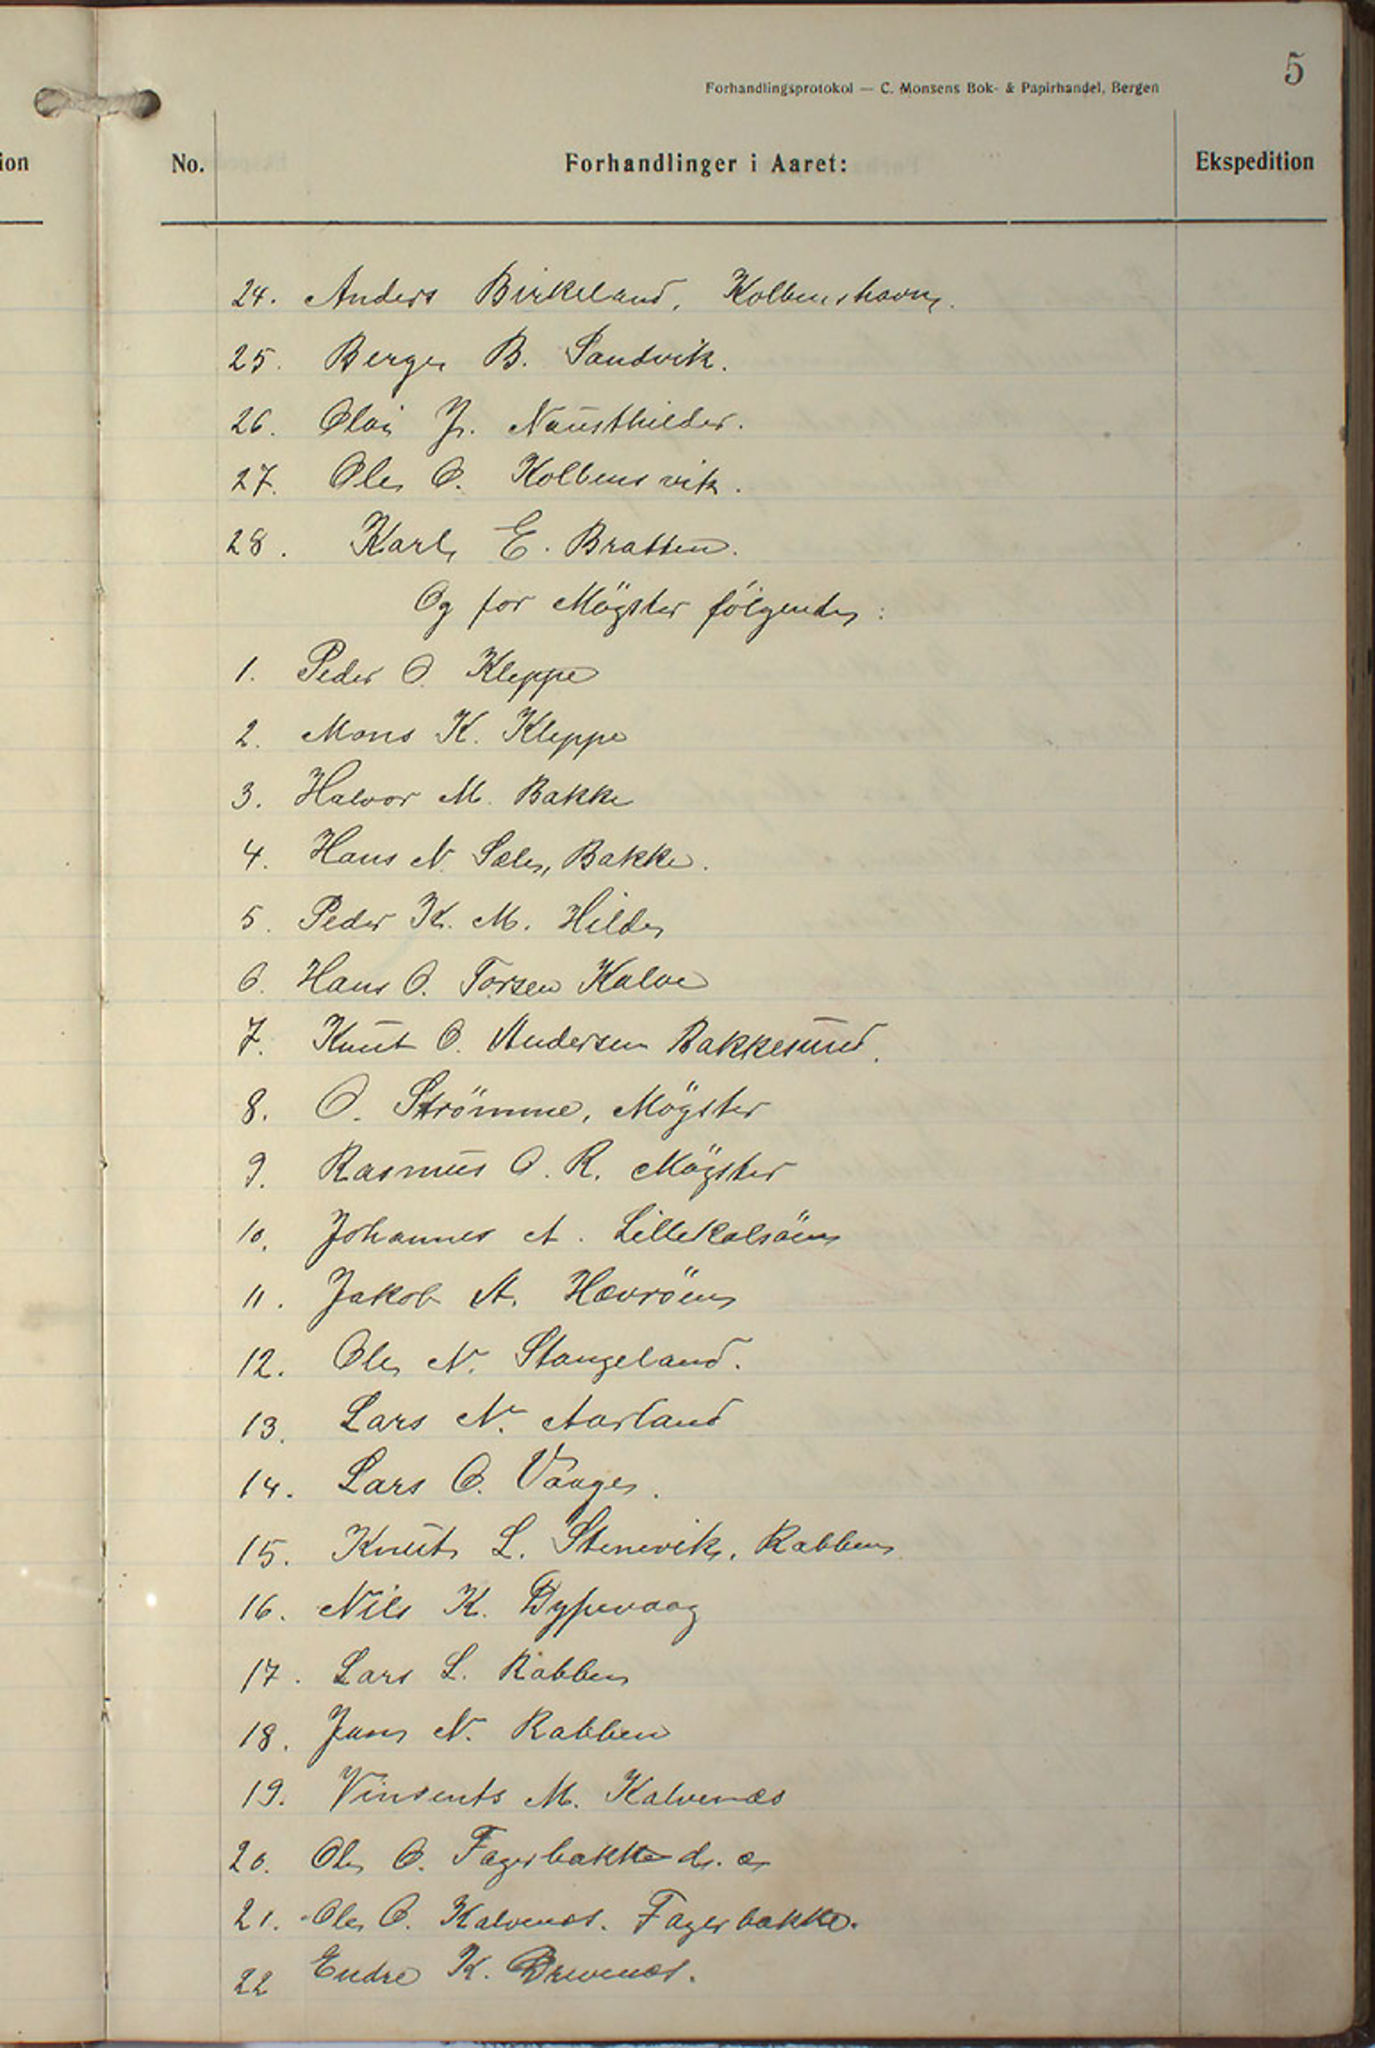 5
Forhandlingsprotokol — C. Monsens Bok- & Papirhandel, Bergen
ion
No. Forhandlinger i Aaret: Ekspedition
24. Anders Birkeland, Kolbenshavn.
25. Berge B. Sandvik.
26. Olai J. Nausthilder.
27. Ole O. Kolbensvik.
28. Karl E. Bratten.
Og for Mögster fölgende:
1. Peder O. Kleppe
2. Mons K. Kleppe
3. Halvor M. Bakke
4. Hans N. Sæle, Bakke.
5. Peder K. M. Hilde
6. Hans O. Torsen Kalve
7. Knut O. Andersen Bakkesund.
8. O. Strömme, Mögster
9. Rasmus O. R. Mögster
10. Johannes A. Lillekalsöen
11. Jakob A. Hævröen
12. Ole N. Stangeland.
13. Lars N. Aarland
14. Lars O. Vaage.
15. Knut L. Stenevik, Rabben
16. Nils K. Dypevaag
17. Lars L. Rabben
18. Jans N. Rabben
19. Vinsents M. Kalvenæs
20. Ole O. Fagerbakke d. æ
21. Ole O. Kalvenæs. Fagerbakke.
22 Endre K. Drivenæs.